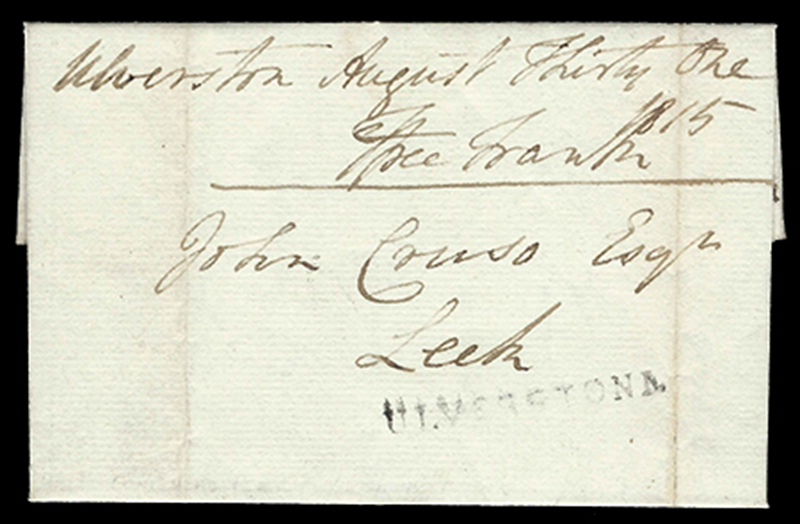 Ulverston August Thirty One
1815
Free Frank
John Cruso Esqr
Leek
ULVERSTONE